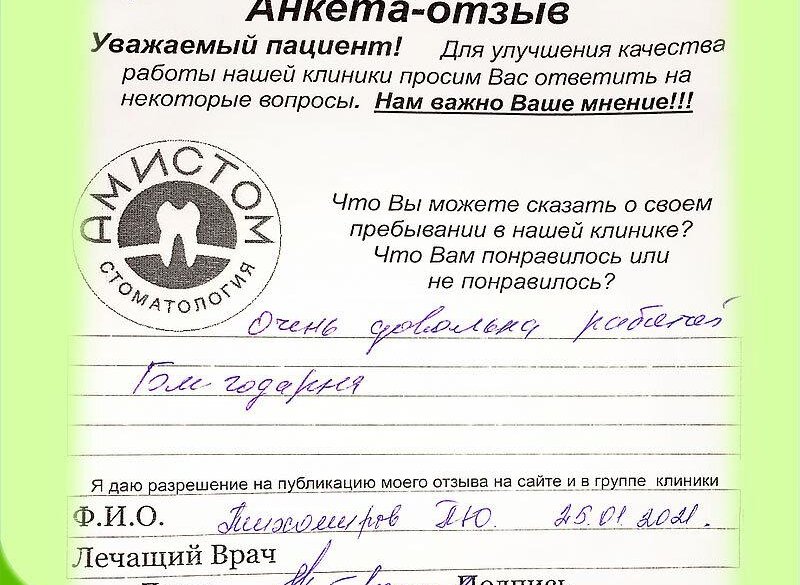 Анкета-отзыв
Уважаемый пациент! Для улучшения качества
работы нашей клиники просим Вас ответить на
некоторые вопросы. Нам важно Ваше мнение!!!
АМИСТОМ
СТОМАТОЛОГИЯ
Что Вы можете сказать о своем
пребывании в нашей клинике?
Что Вам понравилось или
не понравилось?
Очень довольна работай
Я даю разрешение на публикацию моего отзыва на сайте и в группе клиники
Ф.И.О. Тихомиров 25.01.2021.
Лечащий Врач
Подпись